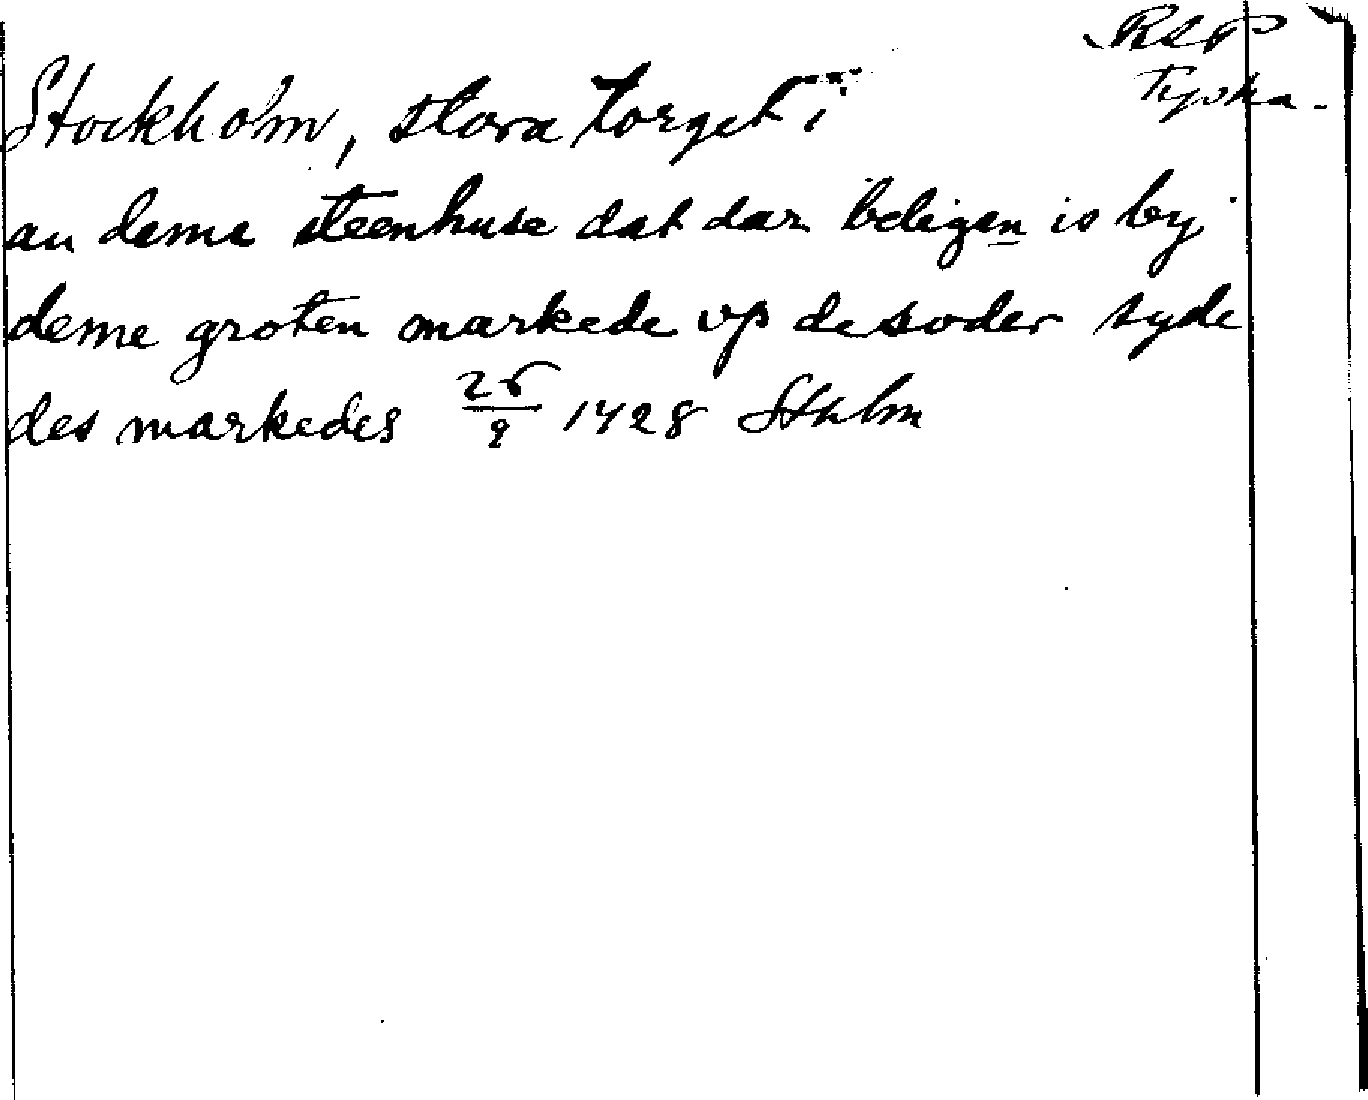 RAP
Tyska.
Stockholm, stora torget i
an deme steenhuse dat dar beligen is by
deme groten markede vp de soder syde
des markedes 25/9 1428 Sthlm